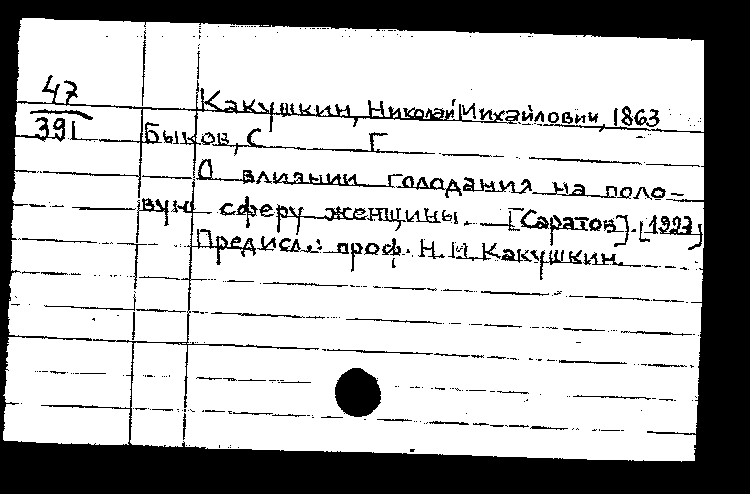 47
391
Какушкин, Николай Михайлович, 1863
Быков, С Г
О влиянии голодания на поло-
вую сферу женщины. [Саратов]. [1927]
Предисл.: проф. Н. М. Какушкин.